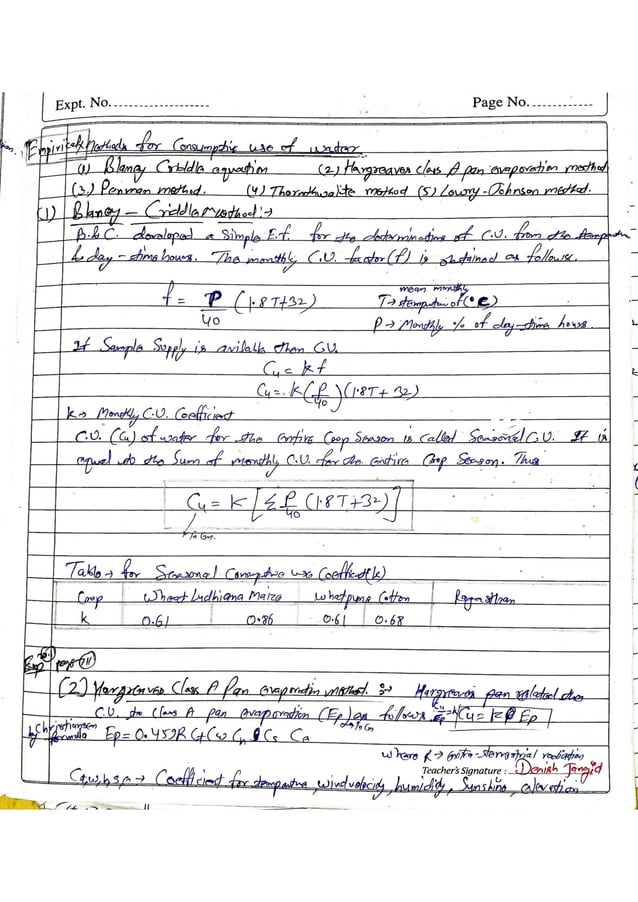 Expt. No.
Page No.
Empirical Methods for Consumptive use of water
(1) Blaney Criddle equation (2) Hargreaves class A pan evaporation method
(3) Penman method. (4) Thornthwaite method (5) Lowry-Johnson method.
(1) Blaney - Criddle Method :→
B.&C. developed a Simple E.f. for the determination of C.U. from the temperature
& day-time hours. The monthly C.U. factor (f) is obtained as follows.
f = P/40 (1.8T+32)
mean monthly
T → temperature of (°C)
P → Monthly % of day-time hours.
If Sample Supply is available then C.U.
Cu = kf
Cu = k(P/40)(1.8T + 32)
k → Monthly C.U. Coefficient
C.U. (Cu) of water for the entire Crop Season is called Seasonal C.U. It is
equal to the Sum of monthly C.U. for the entire Crop Season. Thus
Cu = K [Σ P/40 (1.8T+32)]
in cm.
Table → for Seasonal Consumptive use Coefficient (k)
Crop Wheat Ludhiana Maize Wheat pune Cotton Rajasthan
k 0.61 0.86 0.61 0.68
page
(2) Hargreaves Class A Pan evaporation method :→ Hargreaves pan related the
C.U. to Class A pan evaporation (Ep) as follows Cu = k Ep
by Christiansen formula Ep = 0.459 R Ct Cw Ch Cs Ce
where R → extra-terrestrial radiation
Teacher's Signature : Denish Jangid
Coefficient for temperature, wind velocity, humidity, Sunshine, elevation